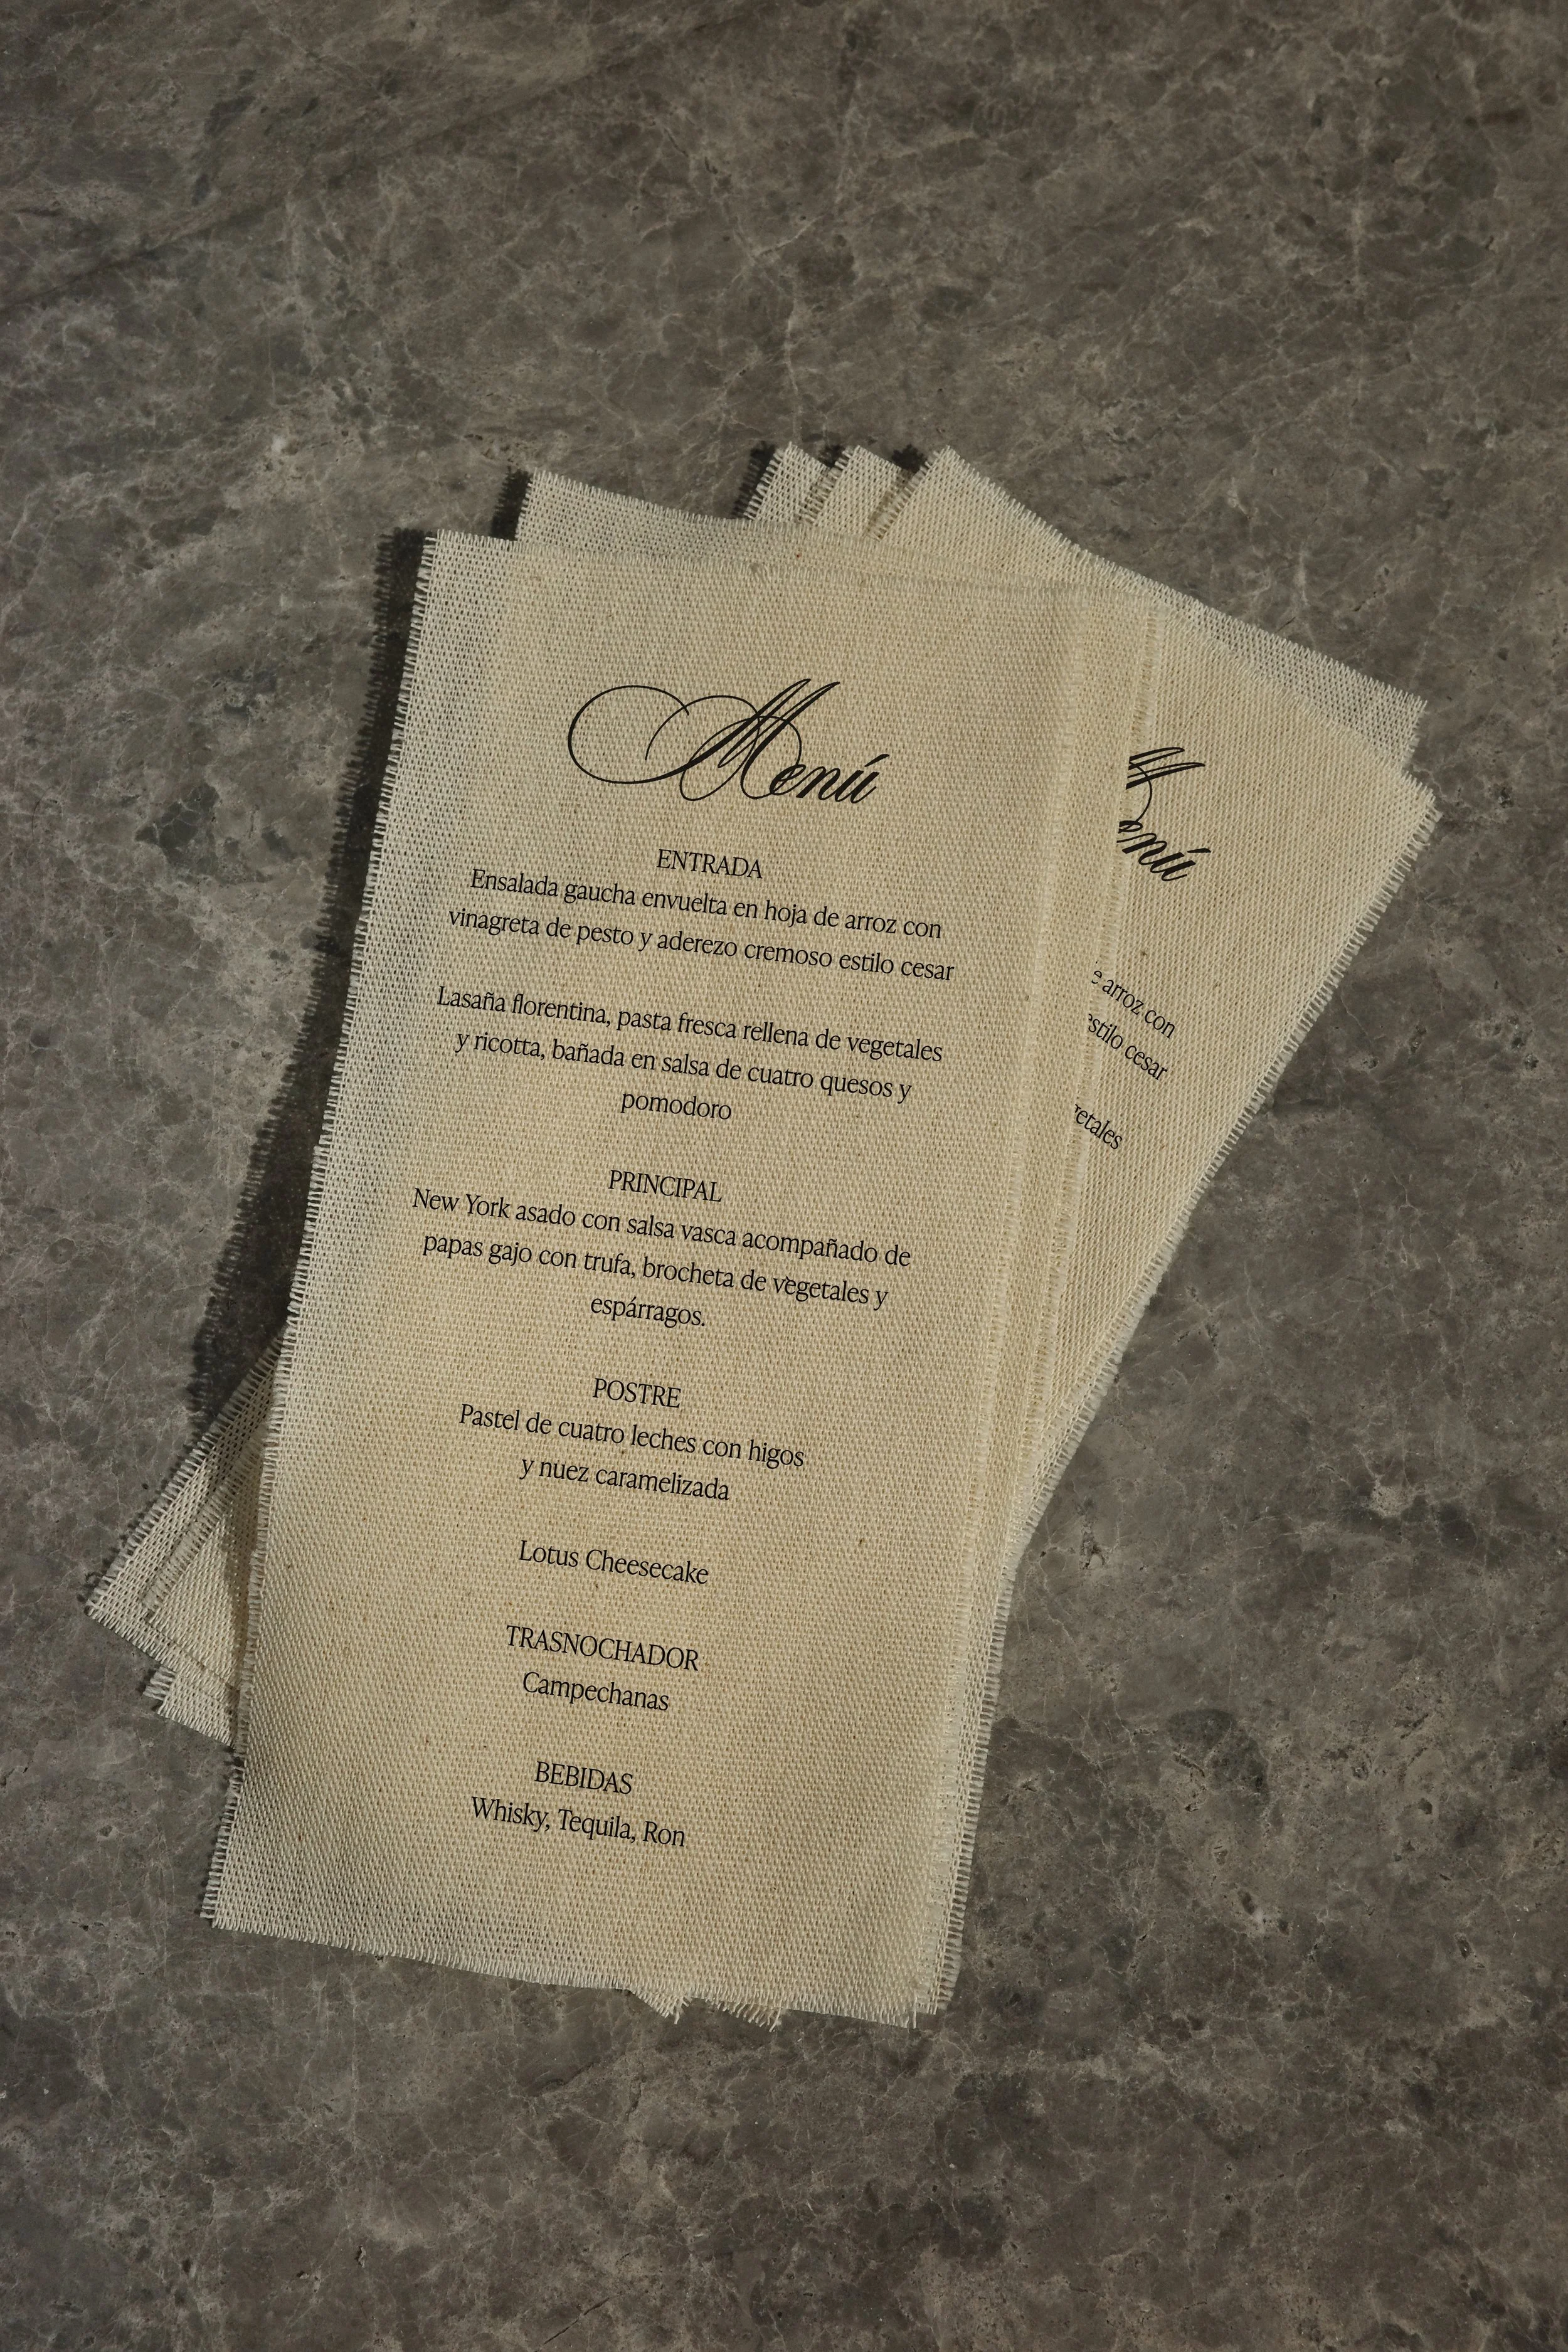 Menú
ENTRADA
Ensalada gaucha envuelta en hoja de arroz con
vinagreta de pesto y aderezo cremoso estilo cesar
Lasaña florentina, pasta fresca rellena de vegetales
y ricotta, bañada en salsa de cuatro quesos y
pomodoro
PRINCIPAL
New York asado con salsa vasca acompañado de
papas gajo con trufa, brocheta de vegetales y
espárragos.
POSTRE
Pastel de cuatro leches con higos
y nuez caramelizada
Lotus Cheesecake
TRASNOCHADOR
Campechanas
BEBIDAS
Whisky, Tequila, Ron
arroz con
cesar